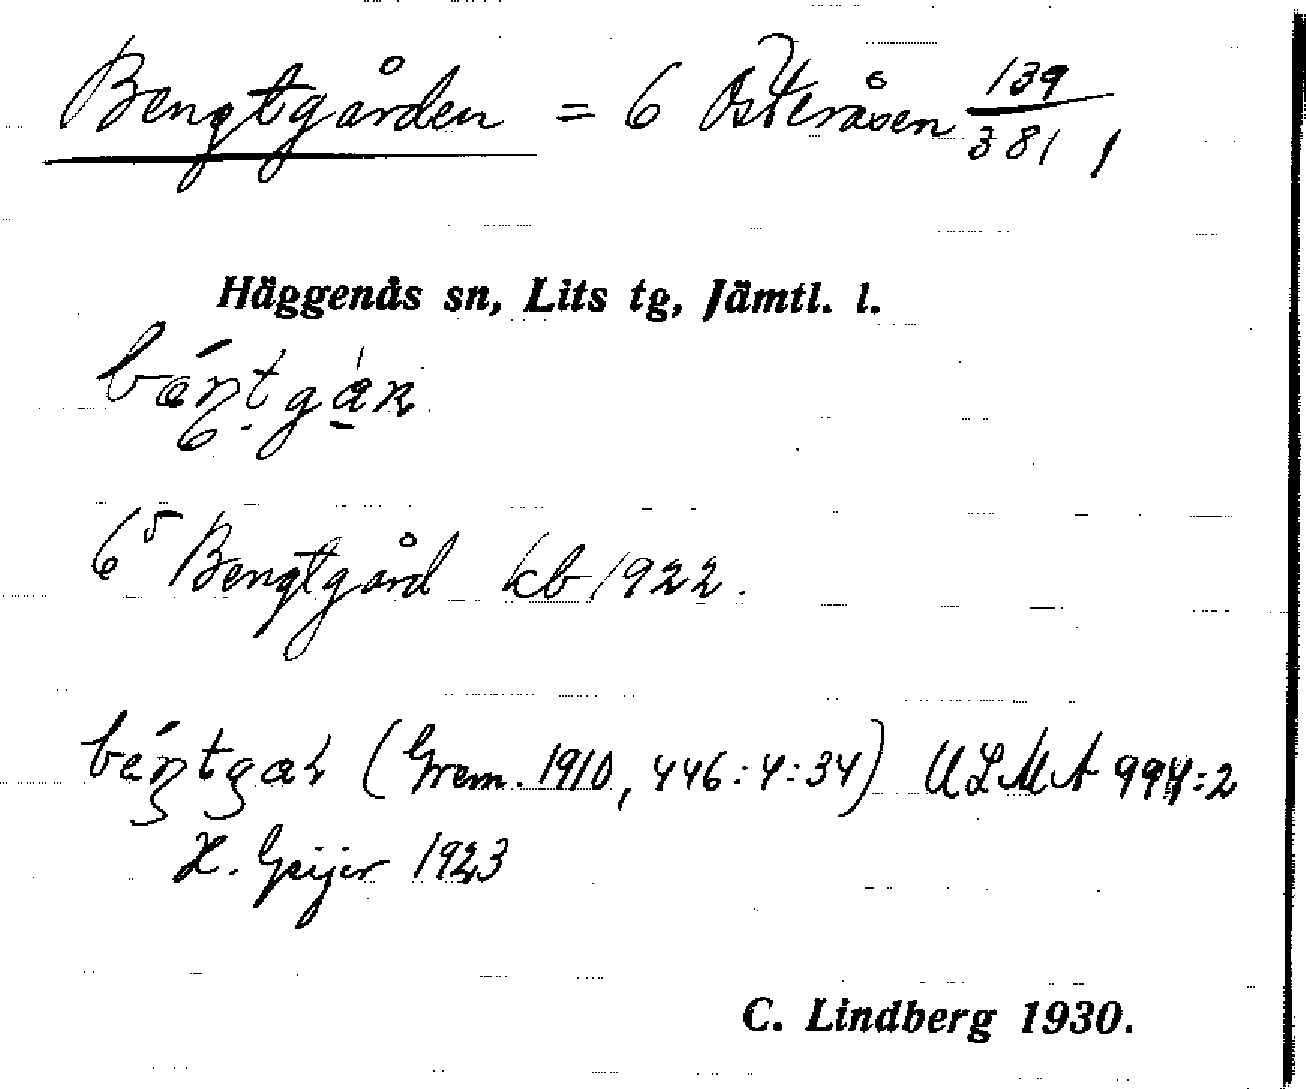 Bengtgården = 6 Österåsen 139/381,
Häggenås sn, Lits tg, Jämtl. l.
6⁵ Bengtgård kb 1922.
(Grem. 1910, 446:4:34) ULMA 994:2
H. Geijer 1923
C. Lindberg 1930.